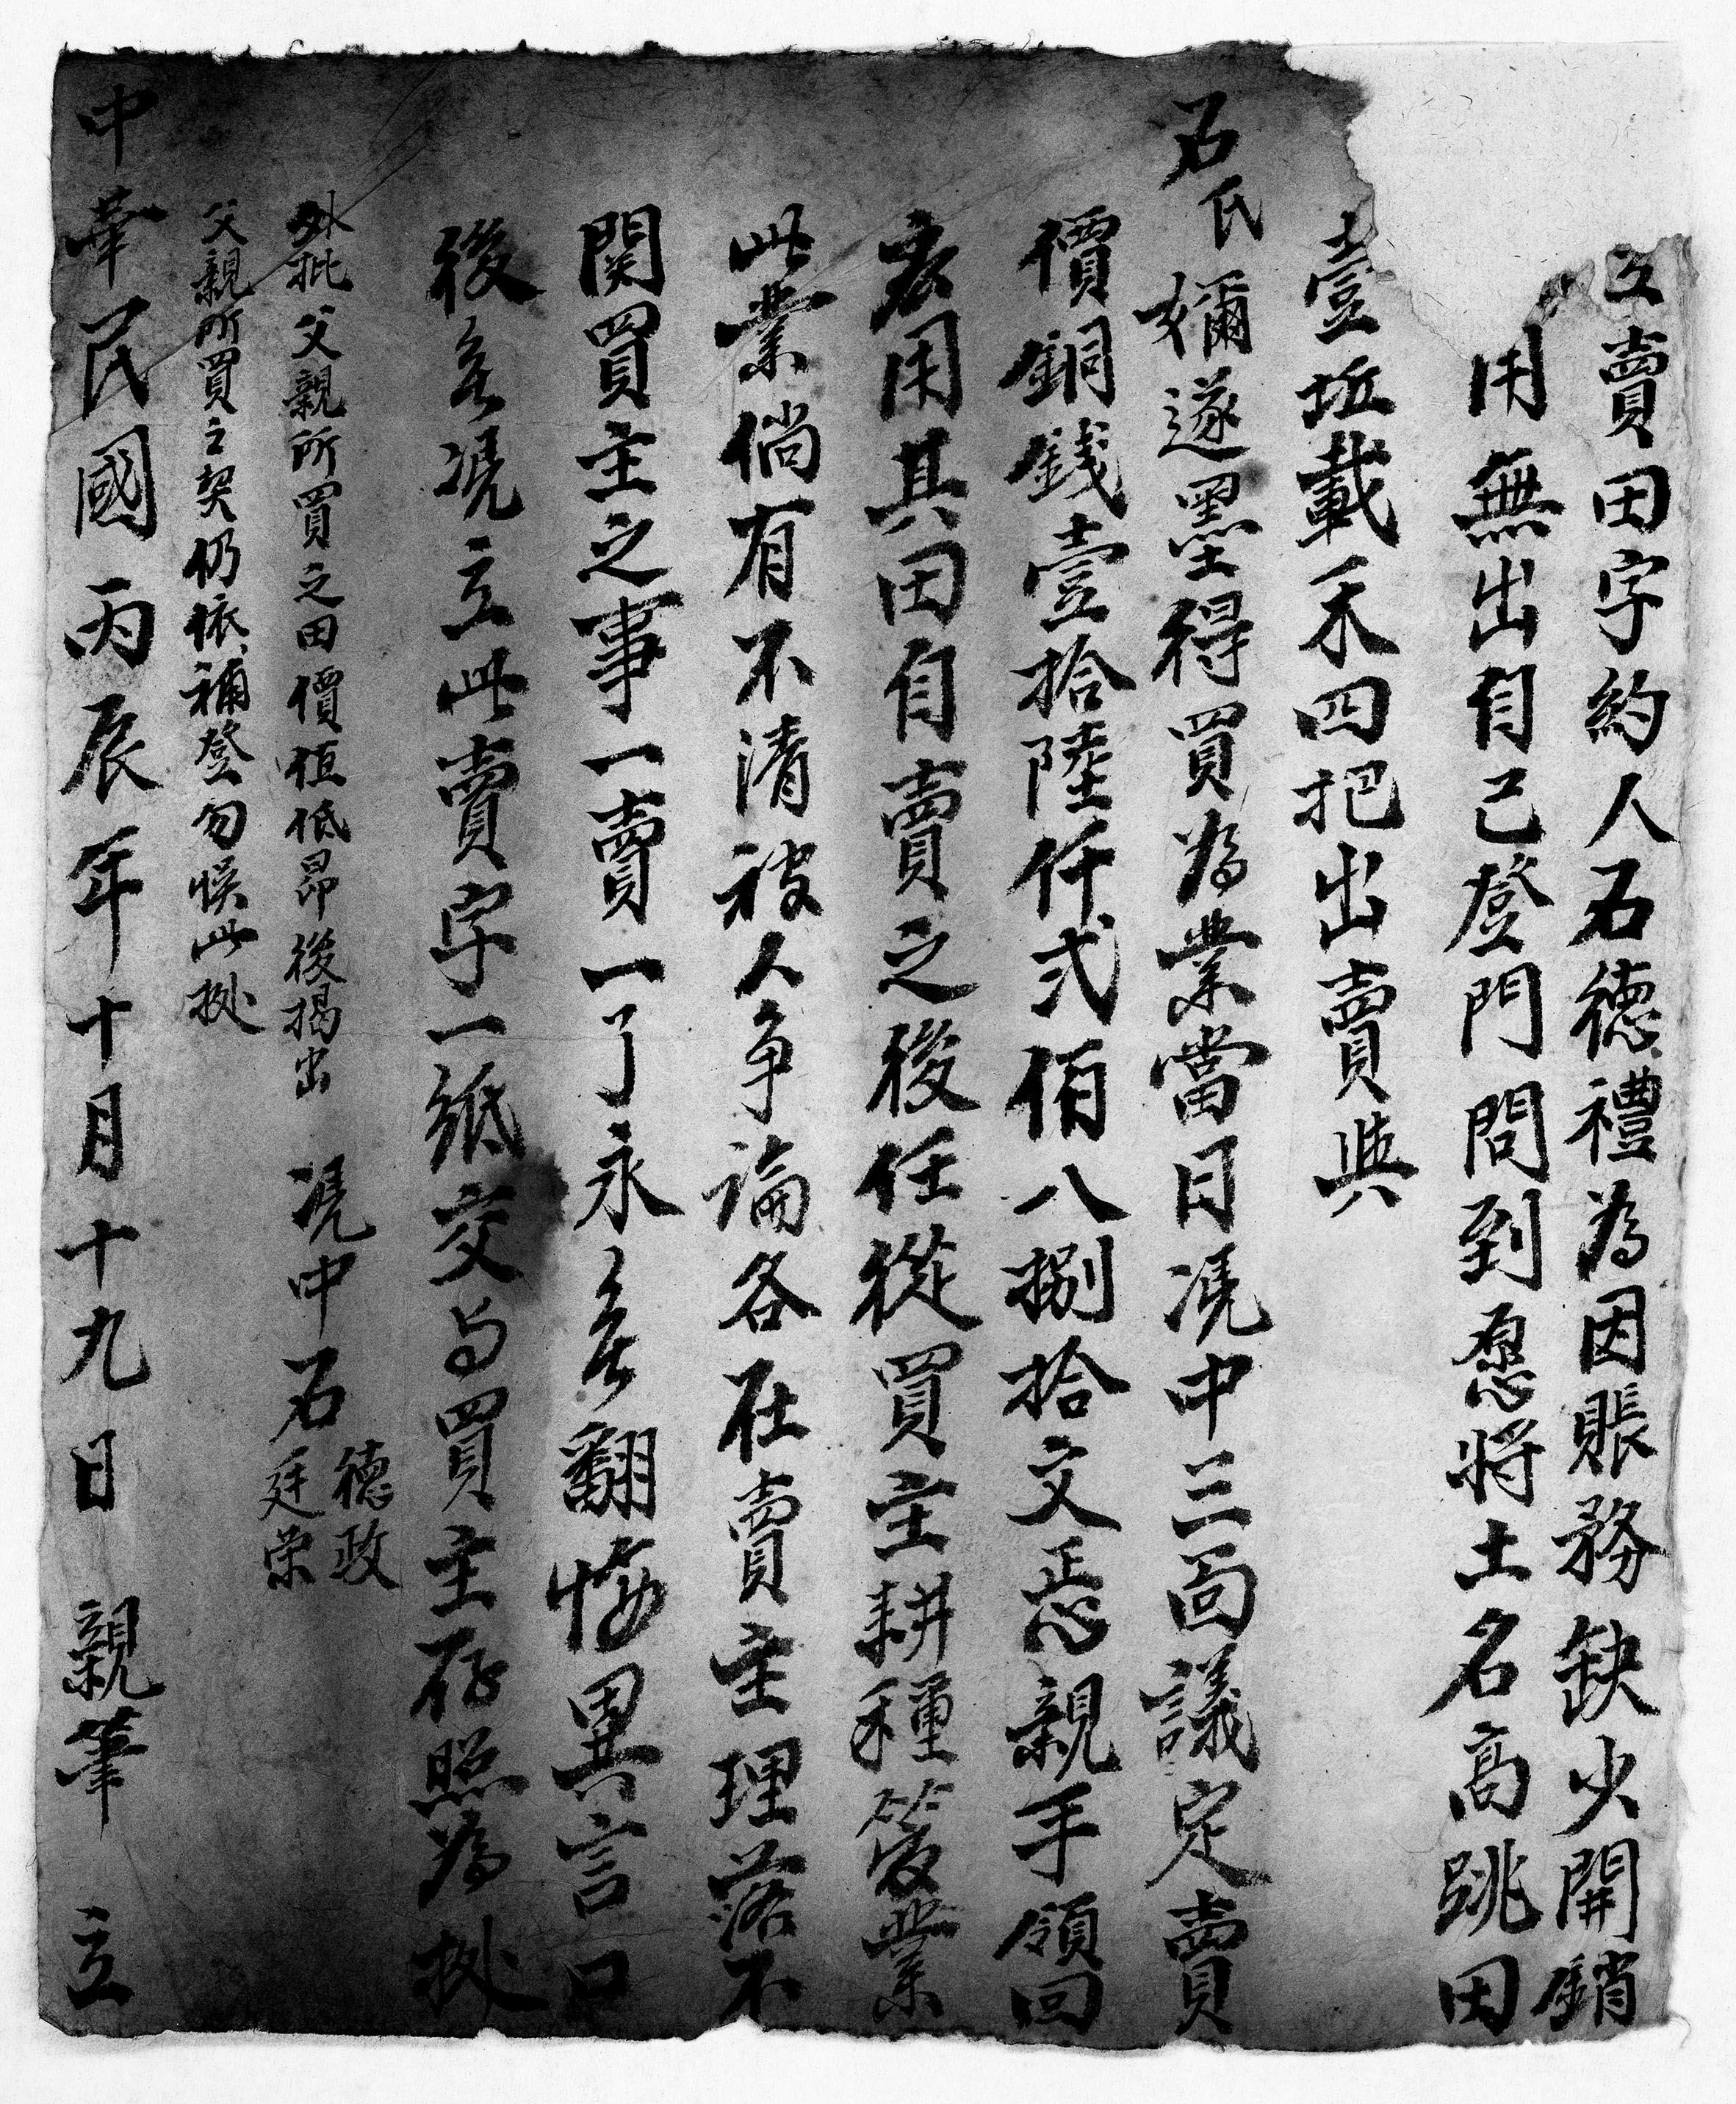 立賣田字約人石德禮為因賬務缺少開銷
用無出自己登門問到愿將土名高跳田
壹坵載禾四把出賣與
石氏嬭遂墨得買為業當日凴中三面議定賣
價銅錢壹拾陸仟弍佰八捌拾文㤫親手領回
應用其田自賣之後任從買主耕種管業
此業倘有不清被人争論各在賣主理落不
関買主之事一賣一了永無翻悔異言口
後無凴立此賣字一紙交与買主存照為拠
外批父親所買之田價值低昂後揭出
父親所買之契仍依補登勿悮此拠
凴中石德政
廷荣
中華民國丙辰年十月十九日親筆立